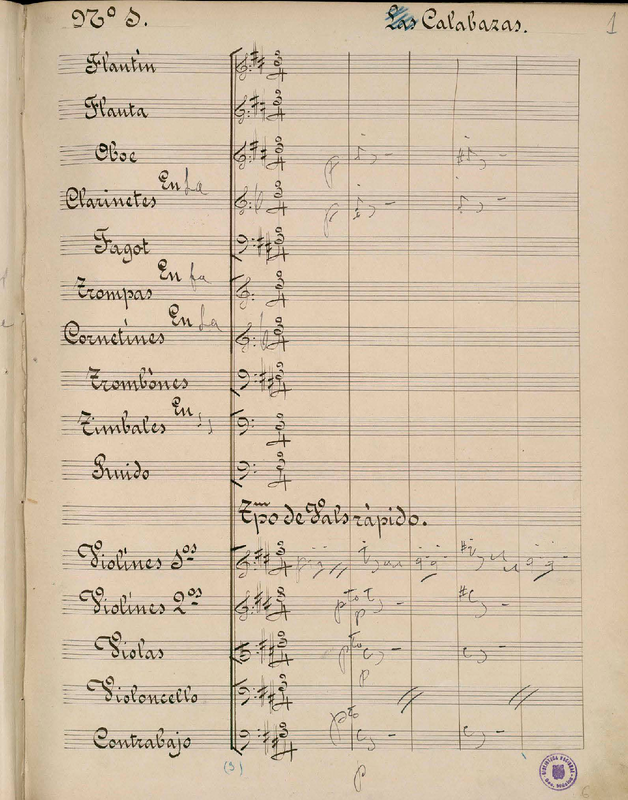 Nº 5. Las Calabazas. 1
Flautín
Flauta
Oboe
Clarinetes En La
Fagot
Trompas En fa
Cornetines En La
Trombones
Timbales En
Ruido
Tpo de Vals rápido.
Violines 1os
Violines 2os
pto
Violas
pto
p
Violoncello
Contrabajo
pto
p
(5)
BIBLIOTECA NACIONAL